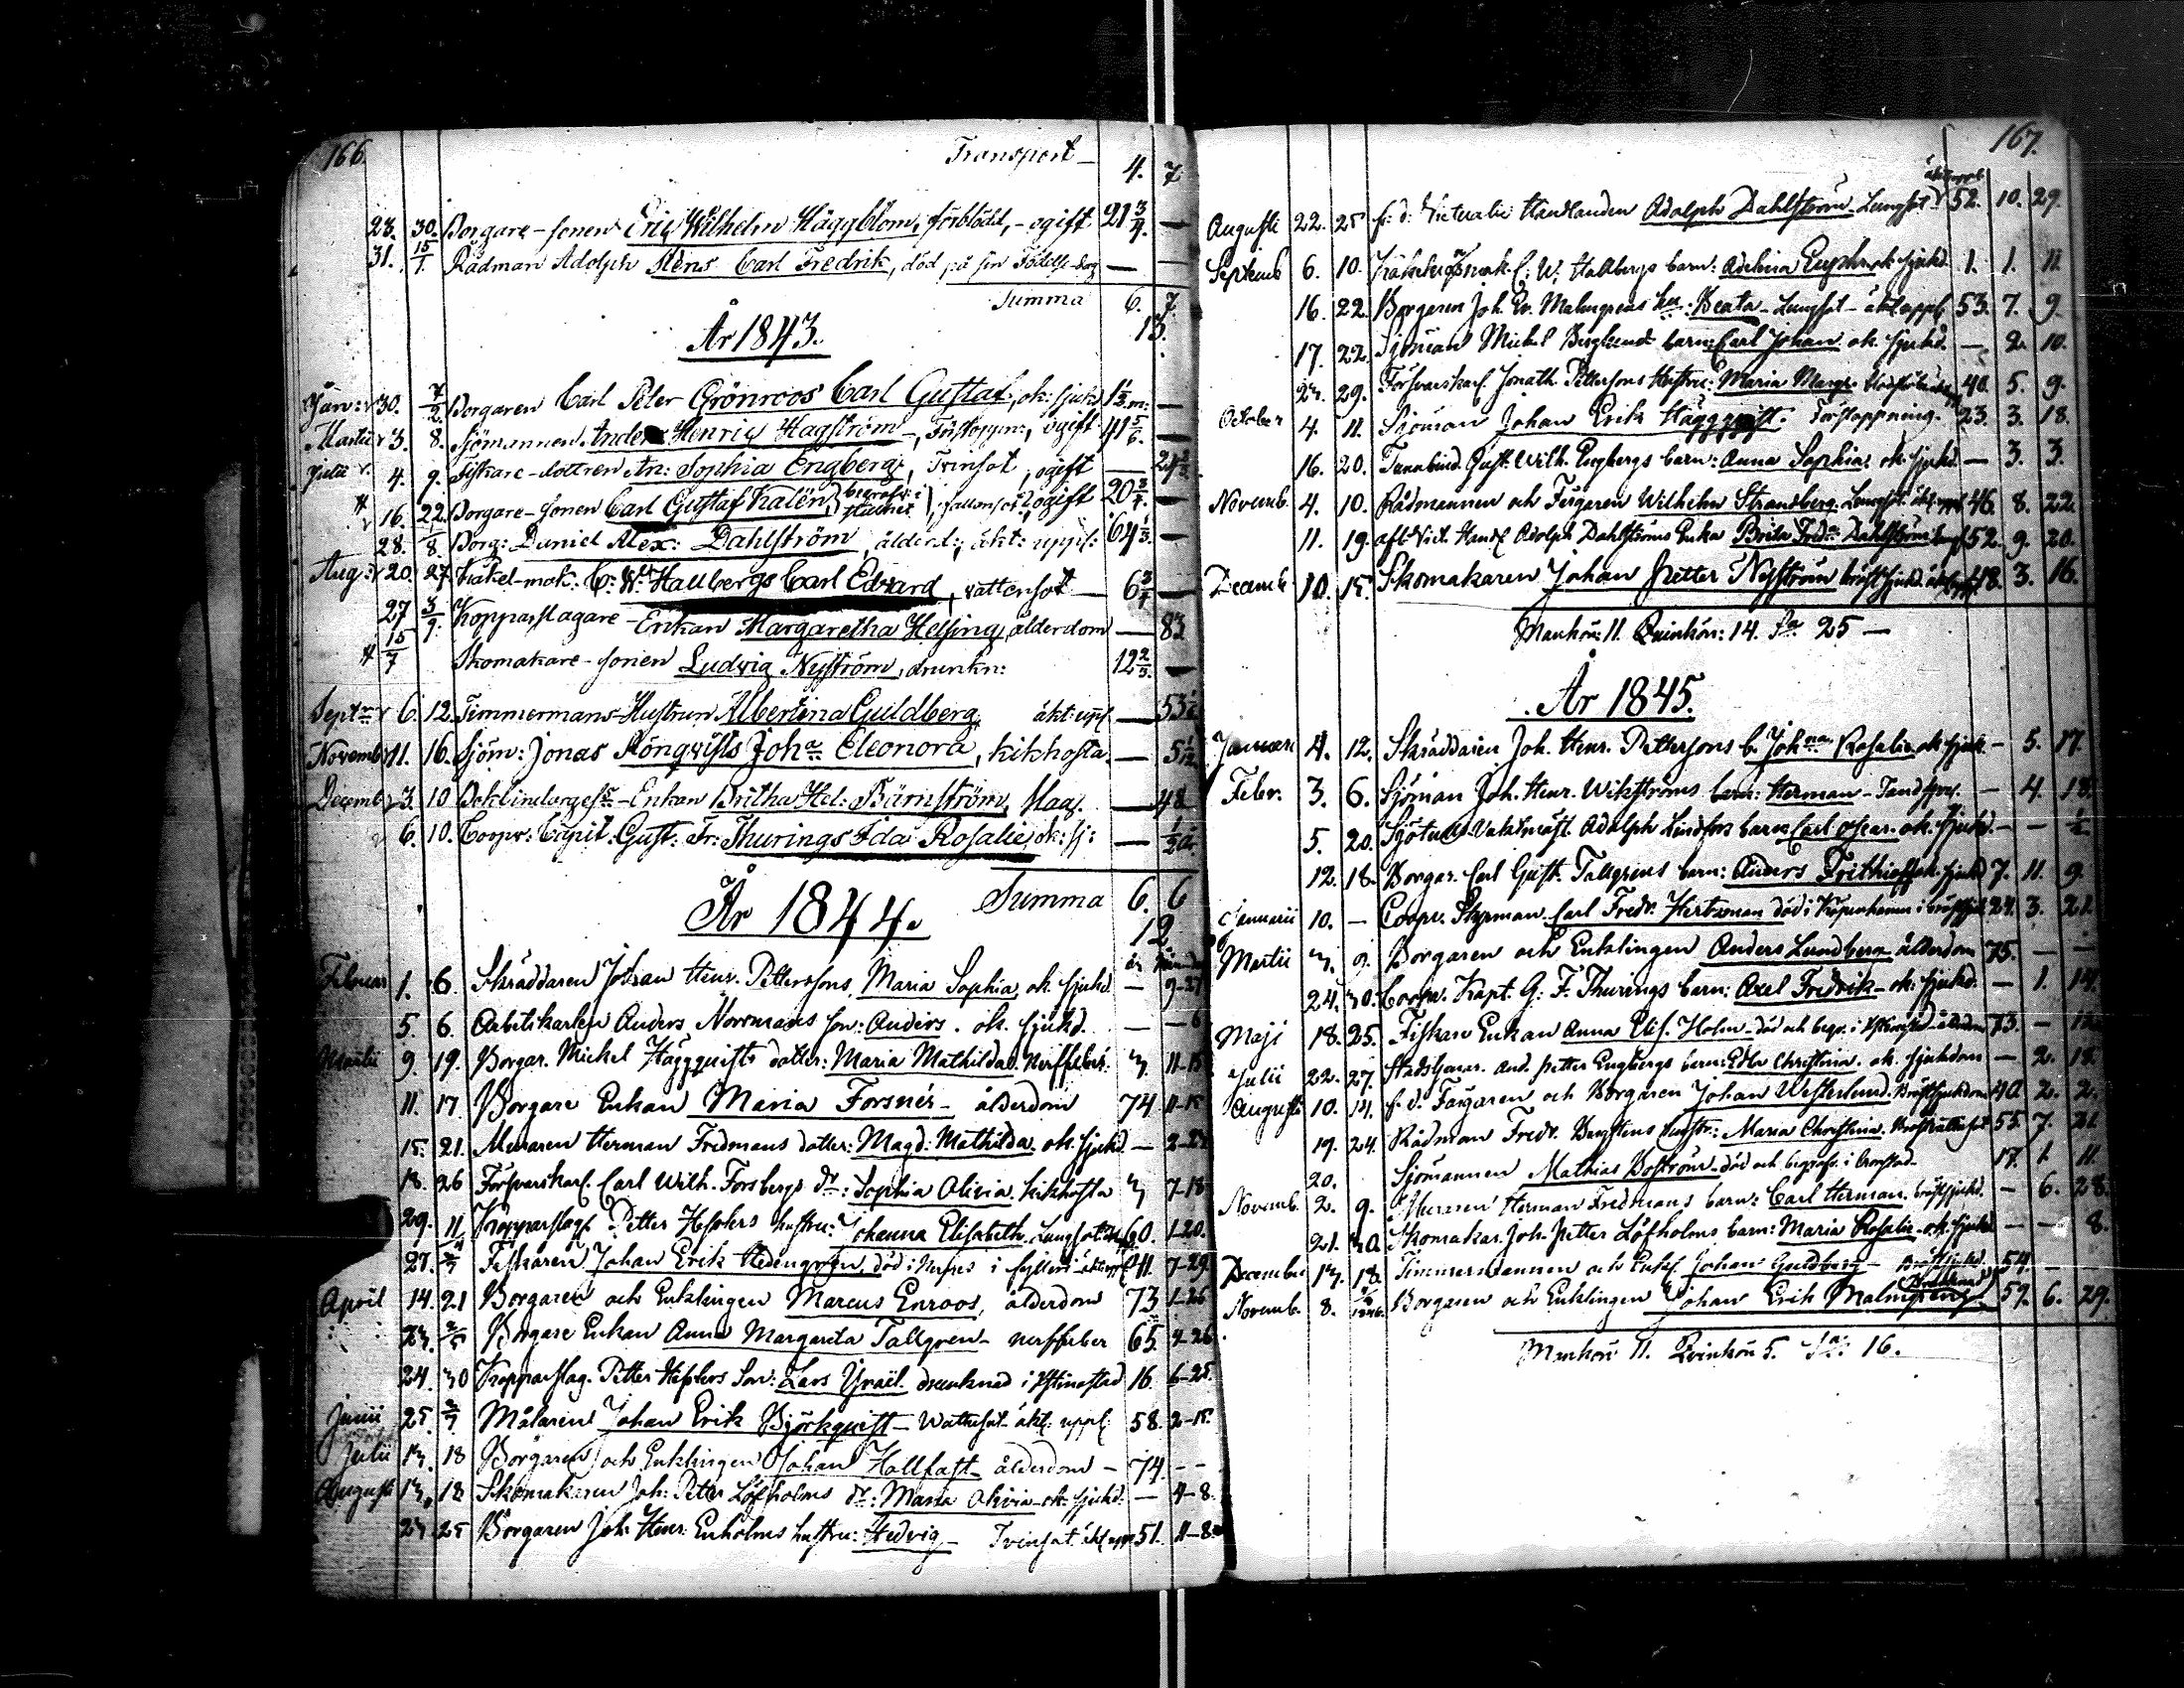 166.
Transport — 4. 7
23. 30. Borgare-sonen Eric Wilhelm Häggblom, förblödd, - ogift 21 3/4. —
31. 15/1. Rådman Adolph Aléns Carl Fredrik, död på sin Födelse-dag — —
Summa 6. 7
13.
År 1843.
Jan: 30. 7/2. Borgaren Carl Peter Grönroos Carl Gustaf, ok: sjukd 1 1/3 m: —
Martii 3. 8. Sjömannen Anders Henric Hagström —, Förstoppn:, ogift 41 5/6. —
Julii 4. 9. Fiskare-dottren An: Sophia Engberg, Tvinsot, ogift — 24 2/3
16. 22. Borgare-sonen Carl Gustaf Kalén, ogift 20 3/4. —
28. 1/8. Borg: Daniel Alex: Dahlström, ålderd:, äkt: uppl: 64 1/3. —
Aug: 20. 27. Kakel-mak: C: W: Hallbergs Carl Edvard, vattensot — 6 3/4 —
27 3/9. Kopparslagare-Enkan Margaretha Helsing, ålderdom — 83
15/7 Skomakare-sonen Ludvig Nyström, drunkn: 12 2/3. —
Septr 6. 12. Timmermans-Hustrun Albertina Guldberg äkt: uppl — 53
Novemb 11. 16. Sjöm: Jonas Rönqvists Joha Eleonora, kikhosta. — 5
Decemb 3. 10. Enkan Britha Hel: Bärnström, slag. — 48
6. 10. Coopv: Capit. Gust: Fr: Thurings Ida Rosalie, ok: sj: — 1/2 år
Summa 6. 6
12.
År 1844.
Februar 1. 6. Skräddaren Johan Henr. Petterssons, Maria Sophia, ok. sjukd — 9-27
5. 6. Arbetskarlen Anders Norrmans son: Anders. ok. sjukd. — — 6
Martii 9. 19. Borgar. Mickel Häggquists dotter: Maria Mathilda. Nerffeber. 3. 11-15
11. 17. Borgare Enkan Maria Forsnér — ålderdom 74 11-15
15. 21. Muraren Herman Fredmans dotter: Magd: Mathilda. ok. sjukd — 2-
18. 26 Försvarskarl. Carl Wilh. Forsbergs dr: Sophia Olivia. kikhosta 3 7-18
29. 11 Kopparslag. Petter Hesslers hustru: Johanna Elisabeth. Lungsot 60. 1-20.
27. Fiskaren Johan Erik Hedengren, död i 41. 7-29.
April 14. 21 Borgaren och Enklingen Marcus Enroos, ålderdom 73 1-26
23. 2/5 Borgare Enkan Anna Margareta Tallgren — nerffeber 65. 2-26
24. 30 Kopparslag. Petter Hesslers Son: Lars Israël. drunknad i Kstinestad 16. 6-25
Junii 25. 2/7 Målaren Johan Erik Björkquist — Wattusot äkt: uppl. 58. 2-15.
Julii 13. 18 Borgaren och Enklingen Johan Hallfast — ålderdom — 74. — —
Augusti 13. 18 Skomakaren Joh: Petter Löfholms dr: Maria Olivia — ok. sjukd. — 4-8.
23 25 Borgaren Joh: Henr. Enholms hustru: Hedvig — Tvinsot. äkt. uppl 51. 11-8.
167.
Augusti 22. 25 f: d: Victualie Handlanden Adolph Dahlström. Lungsot äkt. uppl. 52. 10. 29.
Septemb 6. 10. Kakelugnsmak. C: W. Hallbergs barn: Adelina Euphr. ok. sjukd. 1. 1. 11.
16. 22. Borgaren Joh. Er. Malmgrens hu: Beata — Lungsot — äkt. uppl 53. 7. 9.
17. 22. Sjöman Mickel Berglunds barn: Carl Johan. ok. sjukd. — 2. 10.
23. 29. Försvarskarl Jonath. Pettersons Hustru: Maria Margr. 40. 5. 9.
October 4. 11. Sjöman Johan Erik Häggqvist. Förstoppning. 23. 3. 18.
16. 20. Tunnbind. Gust. Wilh. Engbergs barn: Anna Sophia. ok. sjukd. — 3. 3.
Novemb. 4. 10. Rådmannen och Färgaren Wilhelm Strandberg. Lungsot. äkt. uppl 46. 8. 22.
11. 19. afl. Vict. Handl Adolph Dahlströms Enka Brita Fred: Dahlström 52. 9. 20.
Decemb 10. 15. Skomakaren Johan Petter Nyström bröstsjukd. 48. 3. 16.
Mankön: 11. Quinkön: 14. Sa 25 —
År 1845.
Januari 4. 12. Skräddaren Joh. Henr. Pettersons b. Johna Rosalie. ok. sjukd. — 5. 17.
Febr. 3. 6. Sjöman Joh. Henr. Wikströms barn: Herman — Tandspr. — 4. 18.
5. 20. Sjötulls Vaktmäst. Adolph Lindfors barn: Carl Oscar. ok. sjukd. — — 1/2
12. 18. Borgar. Carl Gust. Tallgrens barn: Anders Frithioff. ok. sjukd 7. 11. 9.
Januarii 10. — Coopv. Styrman Carl Fredr. Hertzman död i Köpenhamn i bröstsjukd 24. 3. 21.
Martii 3. 9. Borgaren och Enklingen Anders Lundberg ålderdom 75. — —
24. 30. Coopv. Kapt. G: F. Thurings barn: Axel Fredrik — ok. sjukd. — 1. 14.
Maji 18. 25. Fiskare Enkan Anna Elis. Holm — död och begr. i Kstinestad — ålderdom 73. —
Julii 22. 27. And. Petter Engbergs barn: Edla Christina. ok. sjukdom — 2. 18.
Augusti 10. 14. f. d. Färgaren och Borgaren Johan Westerlund. Bröstsjukdom 40. 2. 2.
19. 24. Rådman Fredr. Bergstens hustr: Maria Christina. 55. 7. 21.
20. Sjömannen Mathias Boström — död och begrafv. i Cronstad — 17. 1. 11.
Novemb. 2. 9. Muraren Herman Fredmans barn: Carl Herman. bröstsjukd. — 6. 28.
21. 30. Skomakar. Joh. Petter Löfholms barn: Maria Rosalie — ok. sjukd — — 8.
December 13. 18. Timmermannen och Enkl. Johan Guldberg — Bröstsjukd. 54. —
Novemb. 8. Borgaren och Enklingen Johan Erik Malmgren — Drunknad 57. 6. 29.
Mankön 11. Qvinkön 5. Sa: 16.